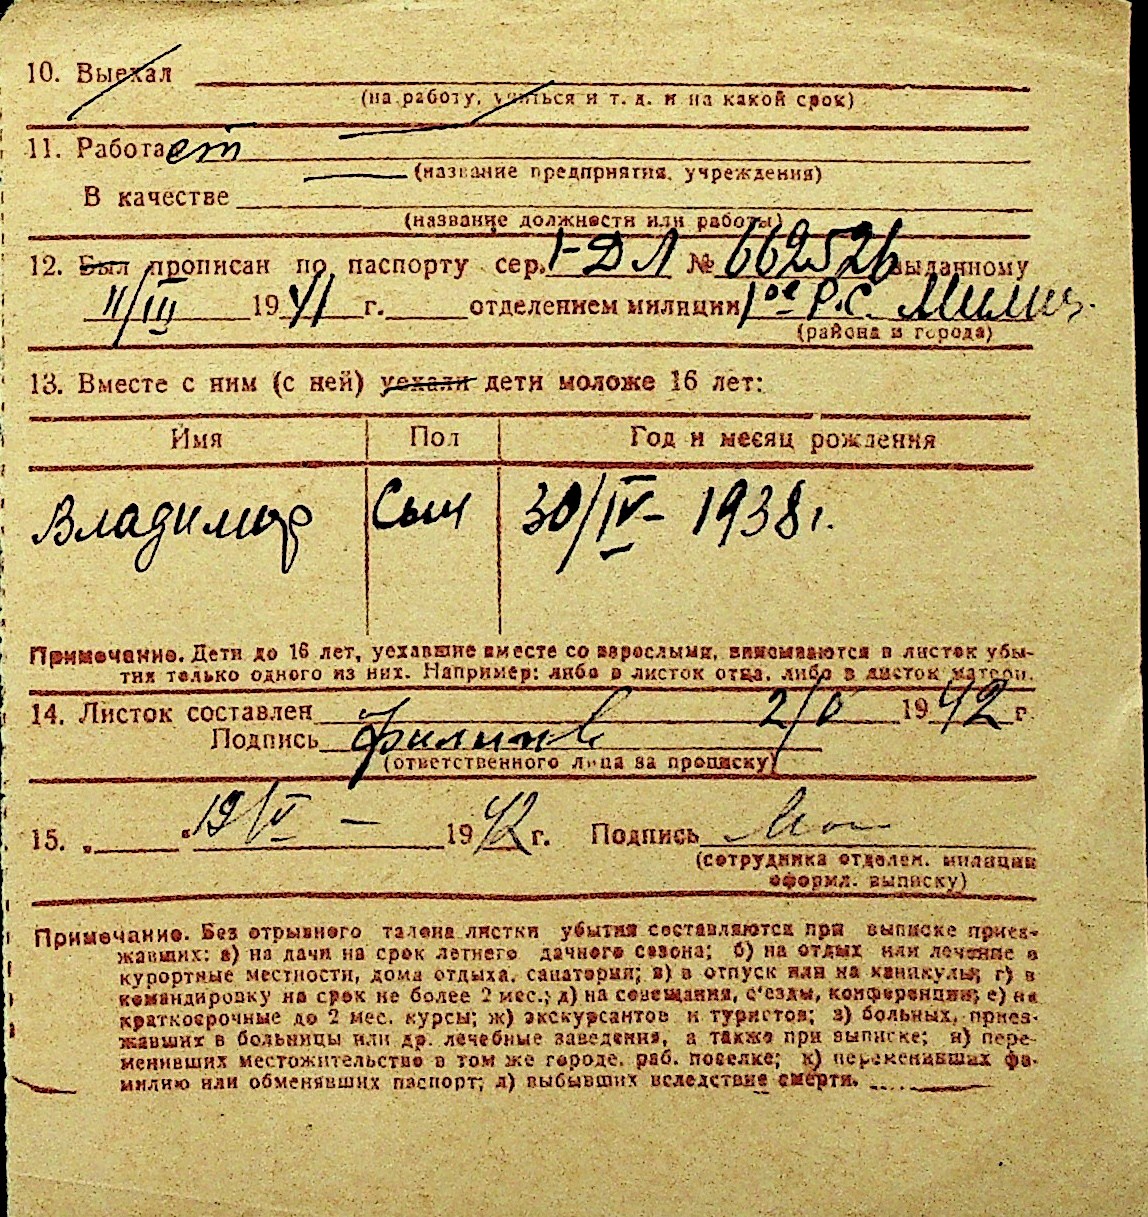 10. Выехал
(на работу, учиться и т. д. и на какой срок)
11. Работает
(название предприятия, учреждения)
В качестве
(название должности или работы)
12. Был прописан по паспорту сер. I-ДЛ № 662526 выданному
11/III 1941 г. отделением милиции 1ое Р.С. Милиц.
(района и города)
13. Вместе с ним (с ней) уехали дети моложе 16 лет:
Имя Пол Год и месяц рождения
Владимир Сын 30/IV- 1938 г.
Примечание. Дети до 16 лет, уехавшие вместе со взрослыми, вписываются в листок убы-
тия только одного из них. Например: либо в листок отца, либо в листок матери.
14. Листок составлен 2/V 1942 г.
Подпись
(ответственного лица за прописку)
15. „ “ 19/V – 1942 г. Подпись
(сотрудника отделен. милиции
оформл. выписку)
Примечание. Без отрывного талона листки убытия составляются при выписке приез-
жавших: а) на дачи на срок летнего дачного сезона; б) на отдых или лечение в
курортные местности, дома отдыха, санатории; в) в отпуск или на каникулы; г) в
командировку на срок не более 2 мес.; д) на совещания, с'езды, конференции; е) на
краткосрочные до 2 мес. курсы; ж) экскурсантов и туристов; з) больных, приез-
жавших в больницы или др. лечебные заведения, а также при выписке; и) пере-
менивших местожительство в том же городе, раб. поселке; к) переменивших фа-
милию или обменявших паспорт; л) выбывших вследствие смерти.